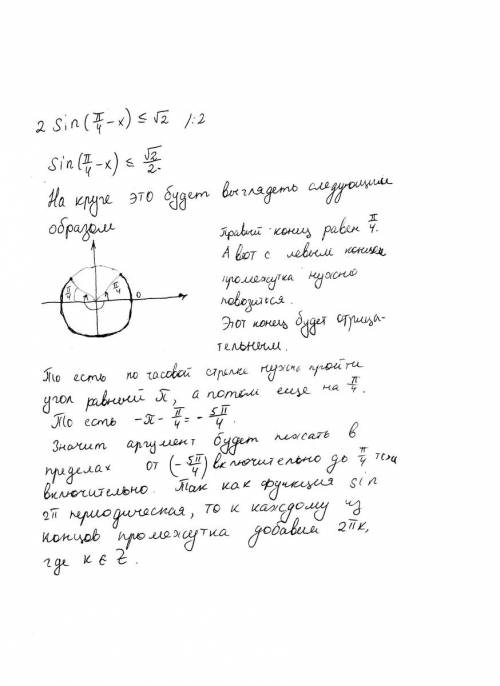 2 sin(π/4 − x) ≤ √2 /:2
sin(π/4 − x) ≤ √2/2.
На круге это будет выглядеть следующим
образом
π/4 π/4 0
Правый конец равен π/4.
А вот с левым концом
промежутка нужно
повозиться.
Этот конец будет отрица-
тельным.
То есть по часовой стрелке нужно пройти
угол равный π, а потом еще на π/4.
То есть −π − π/4 = −5π/4.
Значит аргумент будет лежать в
пределах от (−5π/4) включительно до π/4 тоже
включительно. Так как функция sin
2π периодическая, то к каждому из
концов промежутка добавим 2πk,
где k ∈ Z.